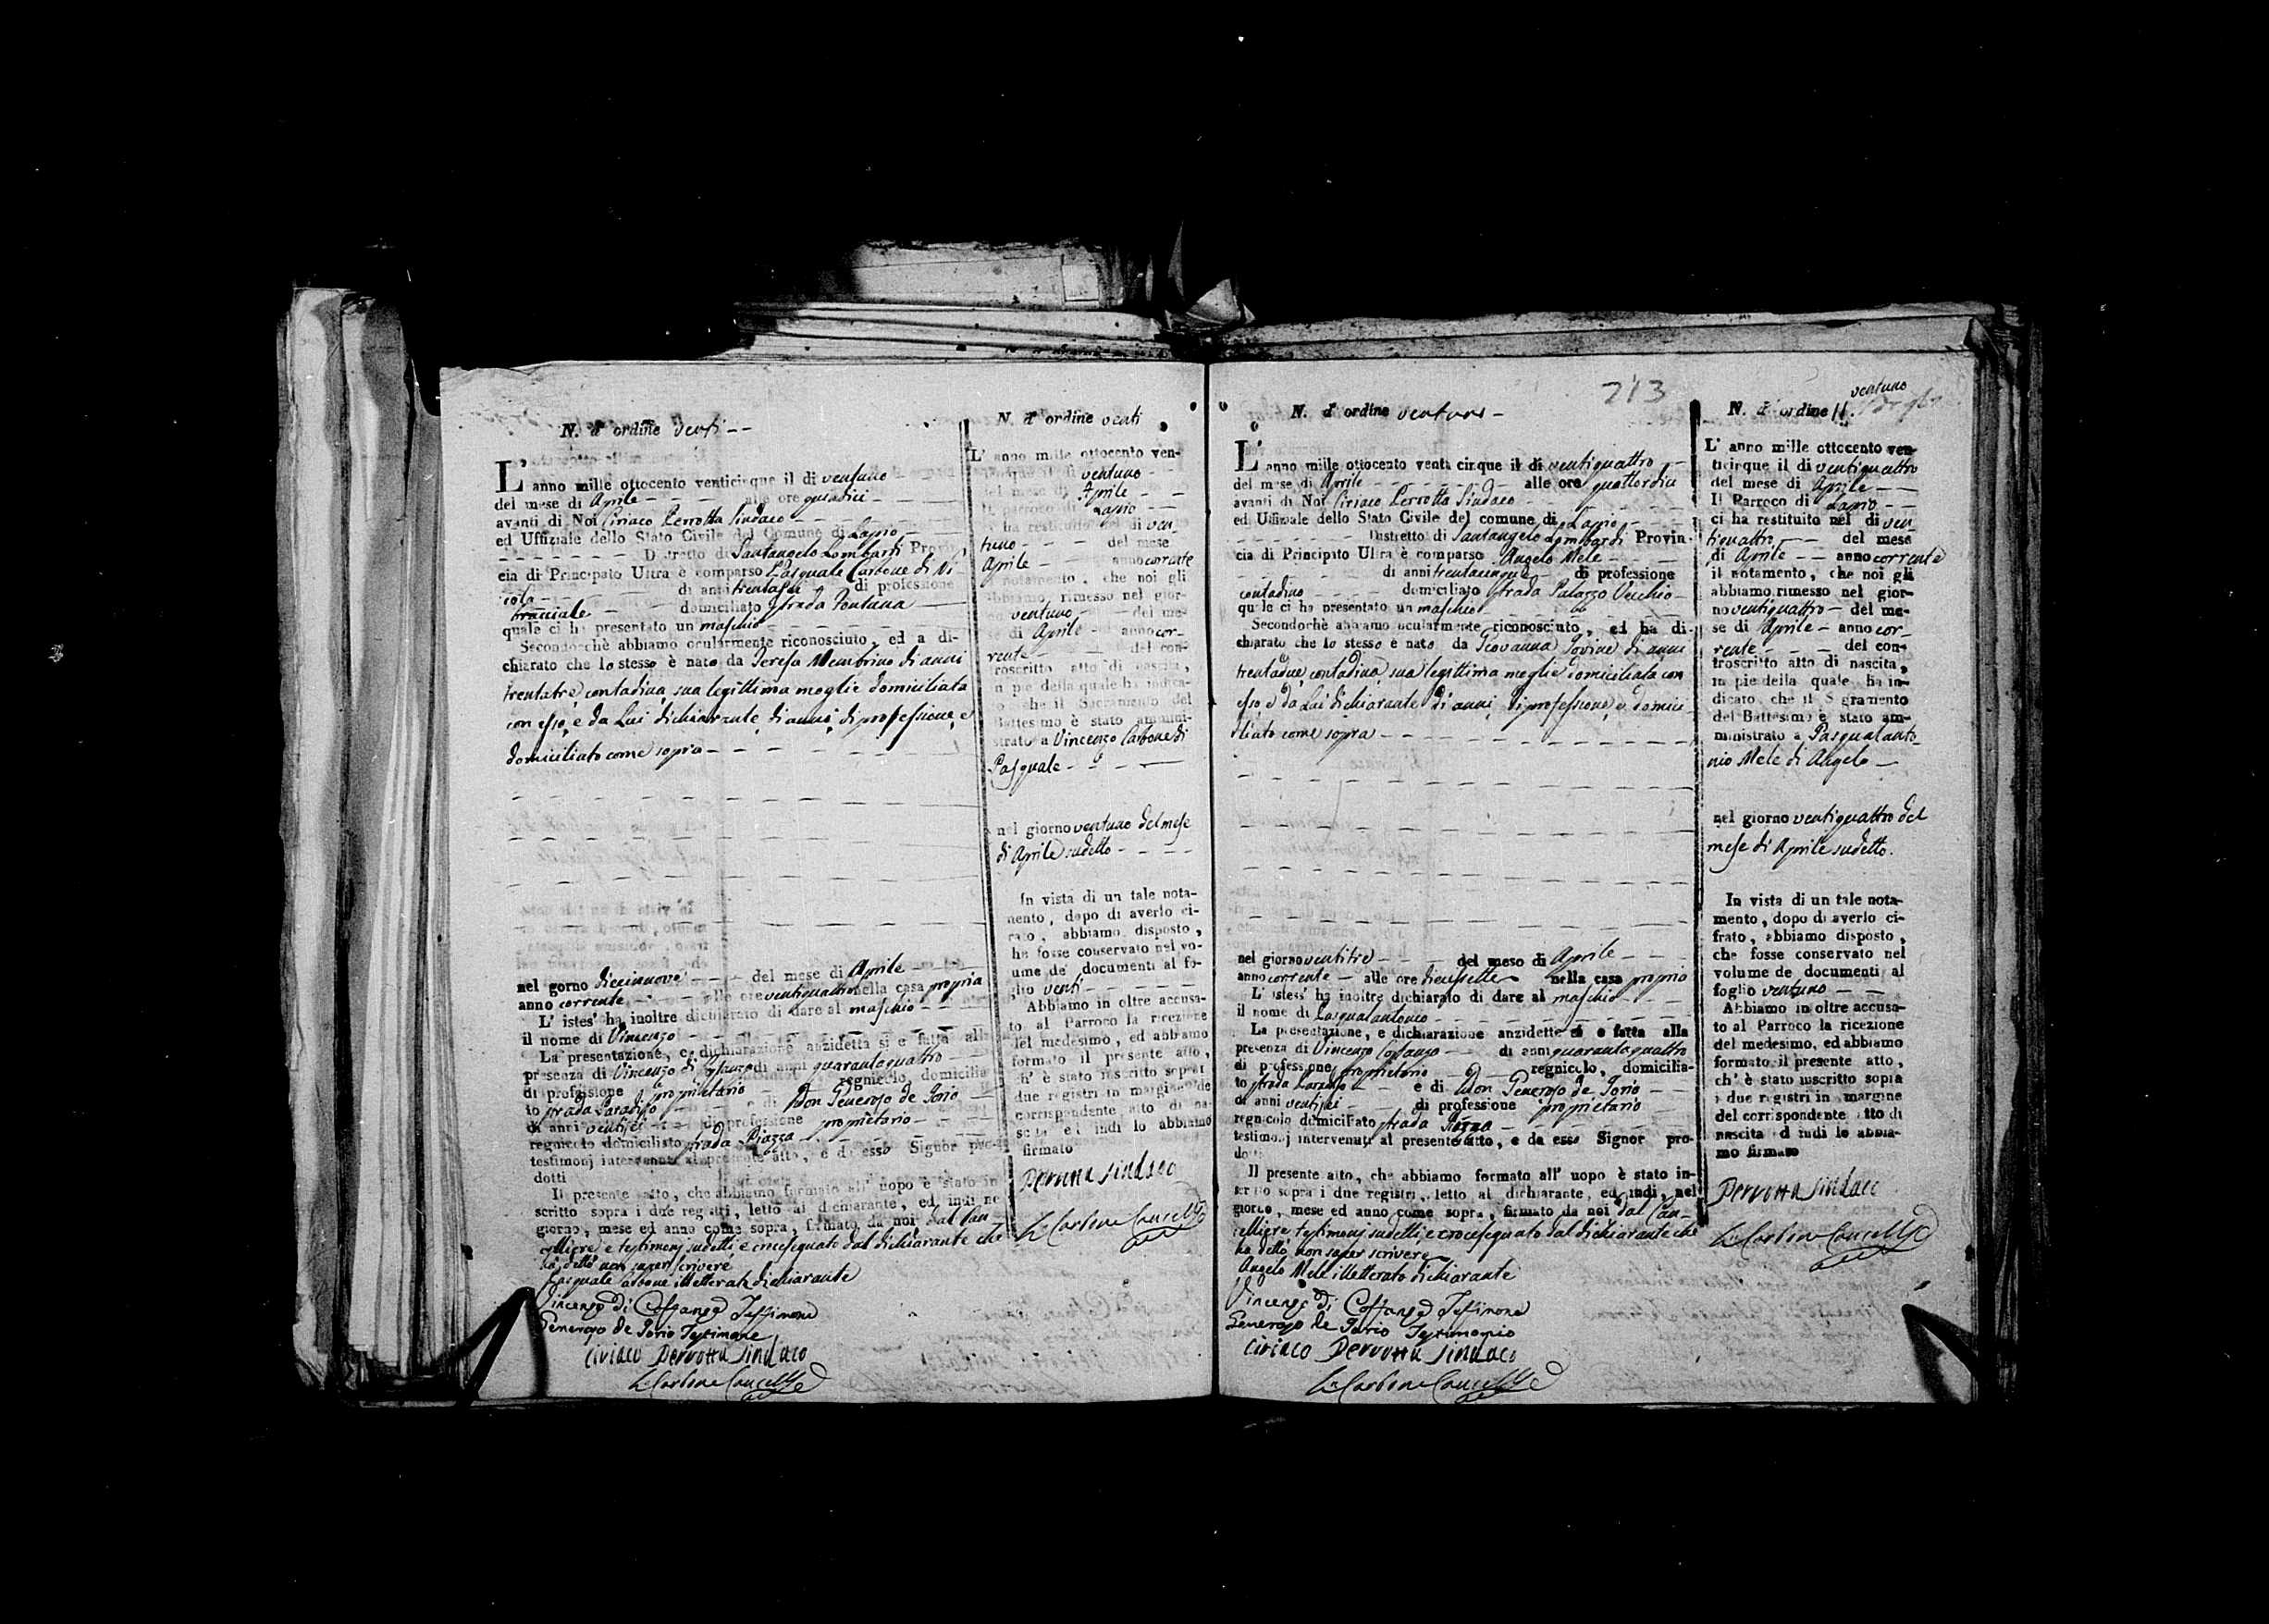 N. d'ordine venti
L'anno mille ottocento venticinque il di ventuno
del mese di Aprile alle ore quindici
avanti di Noi Ciriaco Perrotta Sindaco
ed Uffiziale dello Stato Civile del Comune di Lapio
Distretto di Santangelo Lombardi Provin
cia di Principato Ultra è comparso Pasquale Carbone di Ni
cola di anni trentasei di professione
bracciale domiciliato strada Fontana
quale ci ha presentato un maschio
Secondochè abbiamo ocularmente riconosciuto, ed a di-
chiarato che lo stesso è nato da Teresa Membrino di anni
trentatre contadina sua legittima moglie domiciliata
con esso, e da Lui dichiarante di anni, di professione, e
domiciliato come sopra
nel gorno diecinnove del mese di Aprile
anno corrente alle ore ventiquattro nella casa propria
L'istes' ha inoltre dichiarato di dare al maschio
il nome di Vincenzo
La presentazione, e dichiarazione anzidetta si è fatta alla
presenza di Vincenzo di Costanzo di anni quarantaquattro
di professione proprietario regnicolo, domicilia
to strada Paradiso e di Don Generoso de Iorio
di anni ventisei di professione proprietario
regnicolo domiciliato strada Piazza
testimonj intervenuti al presente atto, e da esso Signor pro-
dotti
Il presente atto, che abbiamo formato all' uopo è stato in
scritto sopra i due registri, letto al dichiarante, ed indi ne
giorno, mese ed anno come sopra, firmato da noi dal Can
celliere e testimonj sudetti, e crocesegnato dal dichiarante che
ha detto non saper scrivere
Pasquale Carbone illetterato dichiarante
Vincenzo di Costanzo Testimone
Generoso de Iorio Testimone
Ciriaco Perrotta Sindaco
Carbone Cancelle
N. d'ordine venti
L'anno mille ottocento ven-
ticinque il di ventuno
del mese di Aprile
Il parroco di Lapio
ci ha restituito nel di ven
tuno del mese
Aprile anno corrente
il notamento, che noi gli
abbiamo rimesso nel gior-
no ventuno del me-
se di Aprile anno cor-
rente del con-
troscritto atto di nascita,
in pie della quale ha indica-
to che il Sacramento del
Battesimo è stato ammini-
strato a Vincenzo Carbone di
Pasquale
nel giorno ventuno del mese
di Aprile sudetto
In vista di un tale nota-
mento, dopo di averlo ci-
frato, abbiamo disposto,
che fosse conservato nel vo-
lume de' documenti al fo-
glio venti
Abbiamo in oltre accusa-
to al Parroco la ricezione
del medesimo, ed abbiamo
formato il presente atto,
ch' è stato inscritto sopra i
due registri in margine de
corrispondente atto di na-
scita ed indi lo abbiamo
firmato
Perrotta Sindaco
Carbone Cancelle
713
N. d'ordine ventuno
L'anno mille ottocento venti cinque il di ventiquattro
del mese di Aprile alle ore quattordici
avanti di Noi Ciriaco Perrotta Sindaco
ed Uffiziale dello Stato Civile del comune di Lapio
Distretto di Santangelo Lombardi Provin-
cia di Principato Ultra è comparso Angelo Mele
di anni trentacinque di professione
contadino domiciliato strada Palazzo Vecchio
quale ci ha presentato un maschio
Secondochè abbiamo ocularmente riconosciuto, ed ha di-
chiarato che lo stesso è nato da Giovanna Iovine di anni
trentadue contadina sua legittima moglie domiciliata con
esso e da Lui dichiarante di anni, di professione, e domici-
liato come sopra
nel giorno ventitre del mese di Aprile
anno corrente alle ore diecissette nella casa propria
L'istess' ha inoltre dichiarato di dare al maschio
il nome di Pasqualantonio
La presentazione, e dichiarazione anzidetta si è fatta alla
presenza di Vincenzo Costanzo di anni quarantaquattro
di professione proprietario regnicolo, domicilia-
to strada Paradiso e di Don Generoso de Iorio
di anni ventisei di professione proprietario
regnicolo domiciliato strada Piazza
testimonj intervenuti al presente atto, e da esso Signor pro-
dotti
Il presente atto, che abbiamo formato all' uopo è stato in-
scritto sopra i due registri, letto al dichiarante, ed indi, nel
giorno, mese ed anno come sopra, firmato da noi dal Can-
celliere, testimonj sudetti, e crocesegnato dal dichiarante che
ha detto non saper scrivere
Angelo Mele illetterato dichiarante
Vincenzo di Costanzo Testimone
Generoso de Iorio Testimonio
Ciriaco Perrotta Sindaco
Carbone Cancelle
ventuno
N. d'ordine
L'anno mille ottocento ven-
ticinque il di ventiquattro
del mese di Aprile
Il Parroco di Lapio
ci ha restituito nel di ven
tiquattro del mese
di Aprile anno corrente
il notamento, che noi gli
abbiamo rimesso nel gior-
no ventiquattro del me-
se di Aprile anno cor-
rente del con-
troscritto atto di nascita,
in pie della quale ha in-
dicato che il Sagramento
del Battesimo è stato am-
ministrato a Pasqualanto-
nio Mele di Angelo
nel giorno ventiquattro del
mese di Aprile sudetto.
In vista di un tale nota-
mento, dopo di averlo ci-
frato, abbiamo disposto,
che fosse conservato nel
volume de documenti al
foglio ventuno
Abbiamo in oltre accusa-
to al Parroco la ricezione
del medesimo, ed abbiamo
formato il presente atto,
ch' è stato inscritto sopra
i due registri in margine
del corrispondente atto di
nascita ed indi lo abbia-
mo firmato
Perrotta Sindaco
Carbone Cancelle